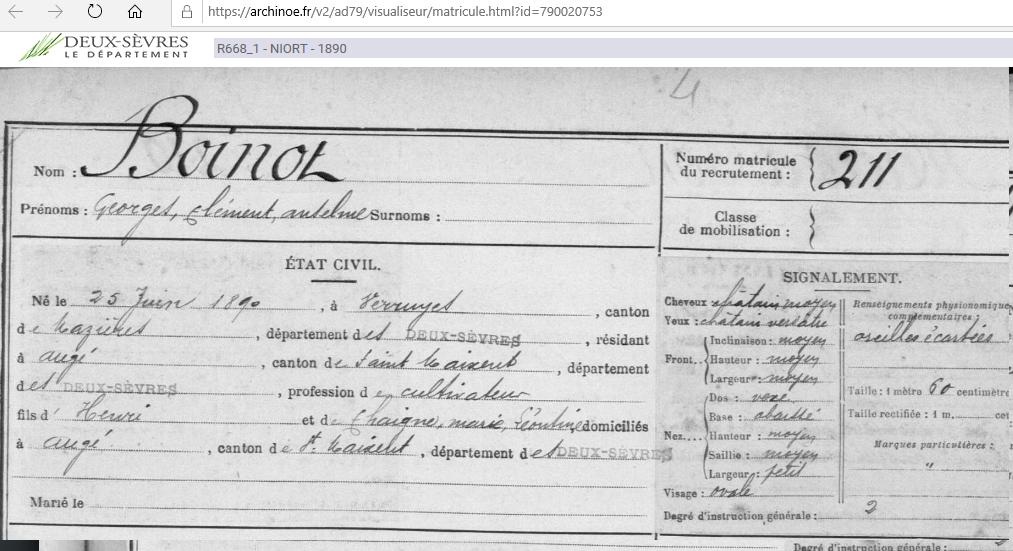 https://archinoe.fr/v2/ad79/visualiseur/matricule.html?id=790020753
DEUX-SÈVRES
LE DÉPARTEMENT
R668_1 - NIORT - 1890
4
Nom : Boinot
Prénoms : Georges, Clément, anselme Surnoms :
Numéro matricule du recrutement : 211
Classe de mobilisation :
ÉTAT CIVIL.
Né le 25 Juin 1890, à Verruyes, canton
de Mazières, département des DEUX-SÈVRES, résidant
à augé, canton de Saint Maixent, département
des DEUX-SÈVRES, profession de cultivateur
fils d' Henri et de Chaigne, marie, Léontine domiciliés
à augé, canton de St Maixent, département des DEUX-SÈVRES
Marié le
SIGNALEMENT.
Cheveux châtain moyen
Yeux : châtain verdâtre
Front.. Inclinaison : moyen
Hauteur : moyen
Largeur : moyen
Nez.... Dos : vexé
Base : abaissé
Hauteur : moyen
Saillie : moyen
Largeur : petit
Visage : ovale
Degré d'instruction générale : 2
Renseignements physionomique
complémentaires :
oreilles écartées
Taille : 1 mètre 60 centimètre
Taille rectifiée : 1 m, cei
Marques particulières :
"
Degré d'instruction générale :